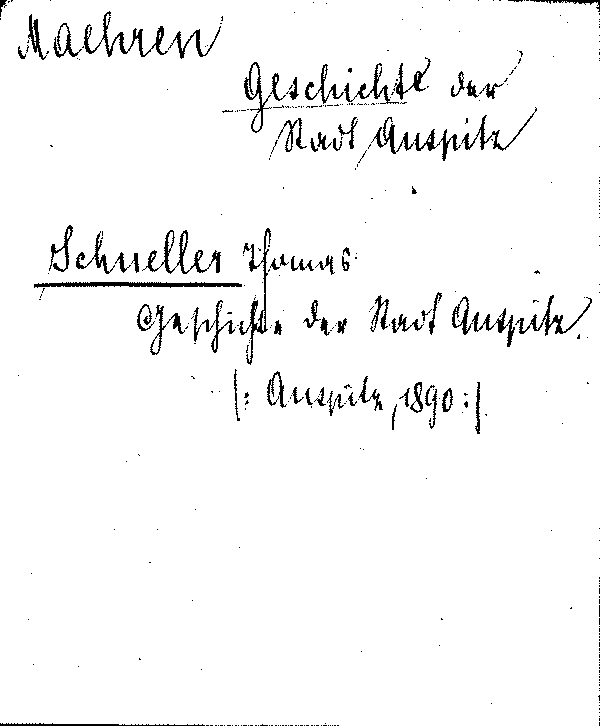 Maehren
Geschichte der
Stadt Auspitz
Schneller Thomas
Geschichte der Stadt Auspitz.
|: Auspitz, 1890 :|